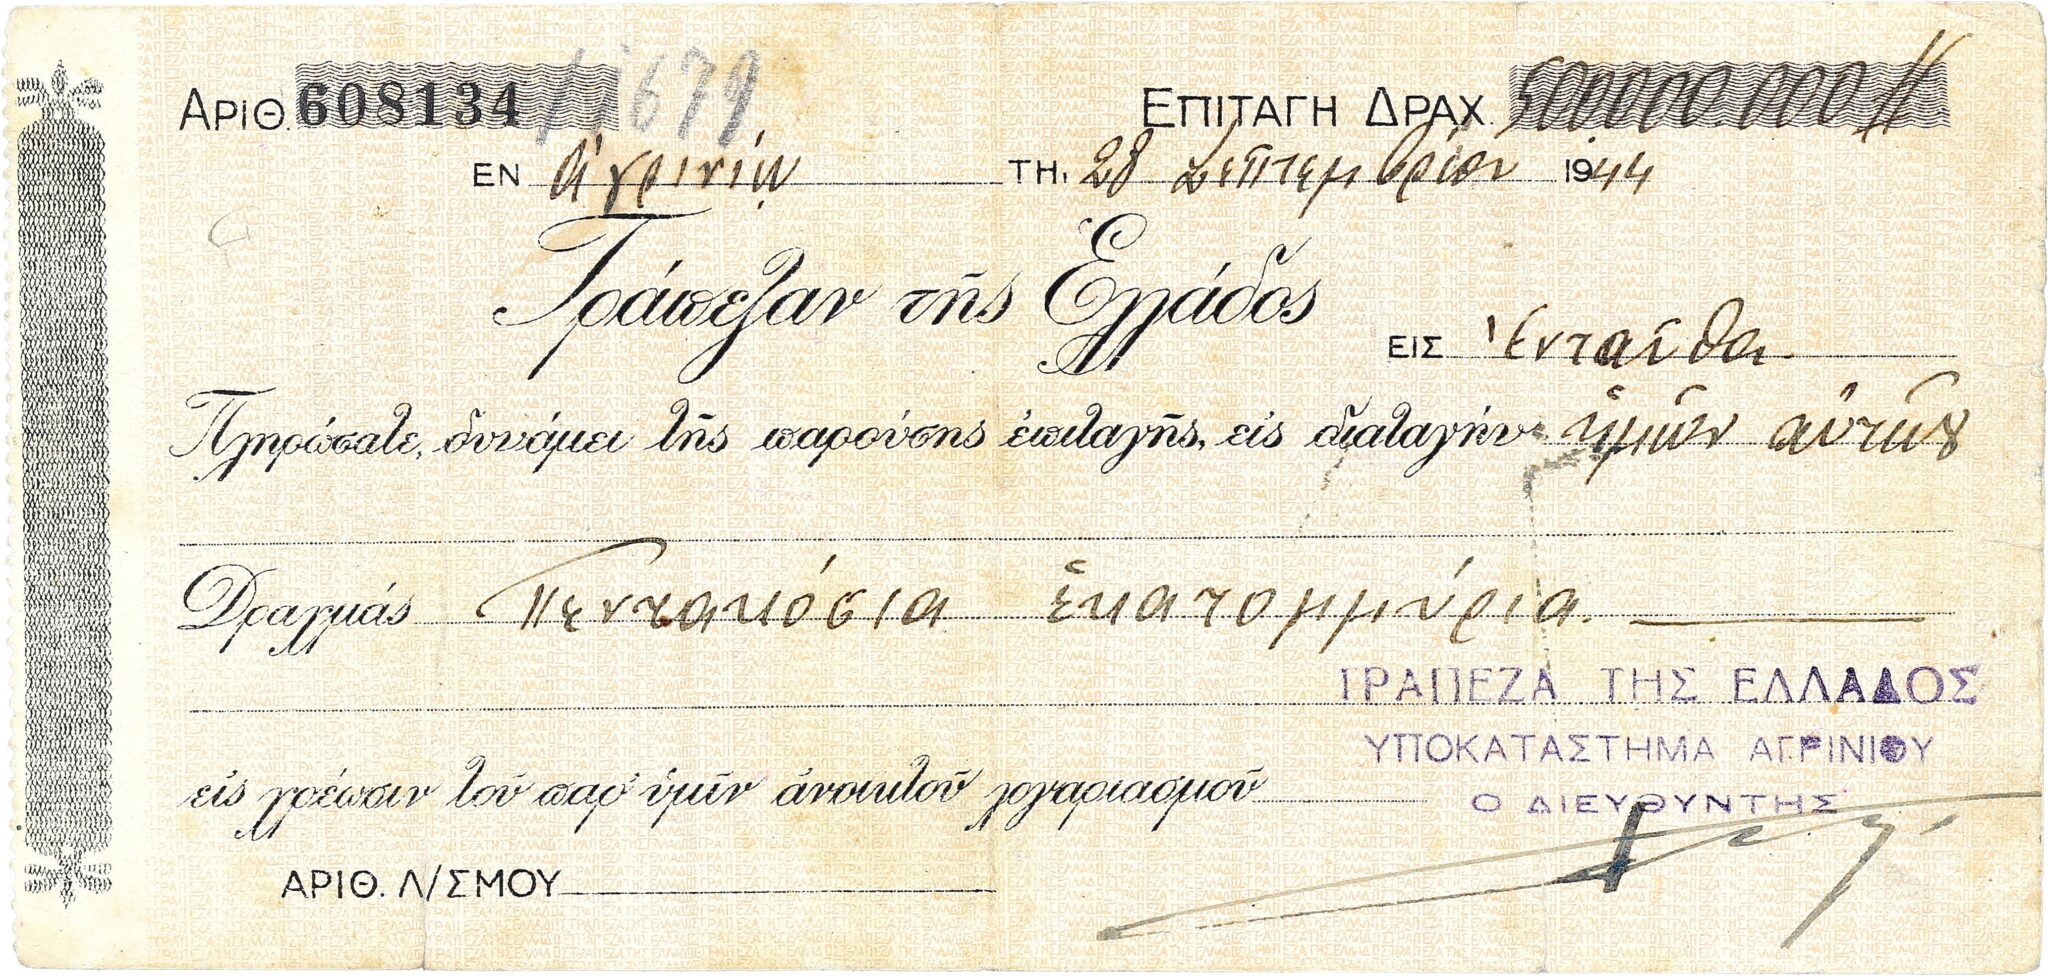 ΑΡΙΘ. 608134 / 1679 ΕΠΙΤΑΓΗ ΔΡΑΧ. 500000000//
ΕΝ Ἀγρινίῳ ΤΗι 28 Σεπτεμβρίου 1944
Τράπεζαν τῆς Ἑλλάδος
ΕΙΣ Ἐνταῦθα
Πληρώσατε, δυνάμει τῆς παρούσης ἐπιταγῆς, εἰς διαταγήν ἡμῶν αὐτῶν
Δραχμάς Πεντακόσια ἑκατομμύρια.
ΤΡΑΠΕΖΑ ΤΗΣ ΕΛΛΑΔΟΣ
ΥΠΟΚΑΤΑΣΤΗΜΑ ΑΓΡΙΝΙΟΥ
εἰς χρέωσιν τοῦ παρ' ὑμῖν ἀνοικτοῦ λογαριασμοῦ
Ο ΔΙΕΥΘΥΝΤΗΣ
ΑΡΙΘ. Λ/ΣΜΟΥ